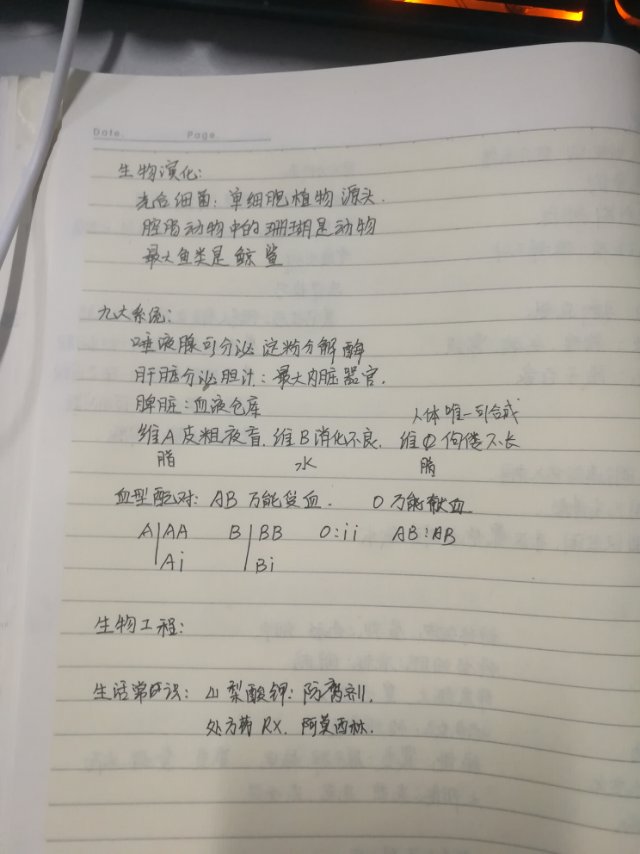 Date.
Page
生物演化:
光合细菌: 单细胞植物源头.
腔肠动物中的珊瑚是动物
最大鱼类是鲸鲨
九大系统:
唾液腺可分泌淀粉分解酶
肝脏分泌胆汁: 最大内脏器官.
脾脏: 血液仓库
人体唯一可合成
维A皮粗夜盲. 维B消化不良. 维D佝偻不长
脂 水 脂
血型配对: AB万能受血. O万能献血
A AA B BB O:ii AB:AB
Ai Bi
生物工程:
生活常识: 山梨酸钾: 防腐剂.
处方药RX. 阿莫西林.